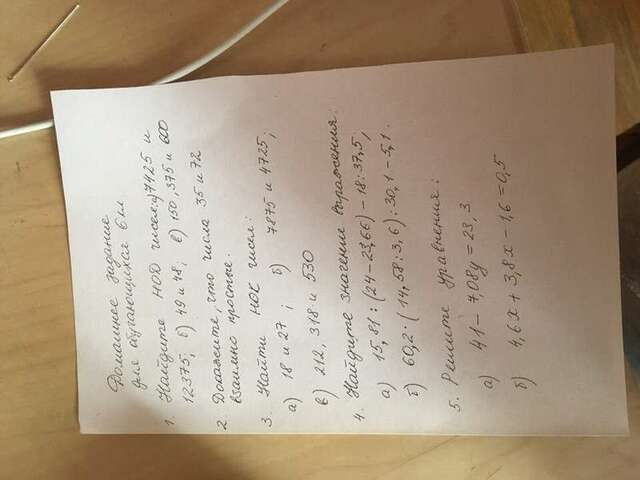 Домашнее задание
для обучающихся 6 кл
1. Найдите НОД чисел: а) 7425 и
12375; б) 49 и 48; в) 150, 375 и 600
2. Докажите, что числа 35 и 72
взаимно простые.
3. Найти НОК чисел:
а) 18 и 27; б) 7875 и 4725;
в) 212, 318 и 530
4. Найдите значение выражения:
а) 15,81 : (24 - 23,66) - 18 : 37,5;
б) 60,2 · (14,58 : 3,6) : 30,1 - 5,1.
5. Решите уравнения:
а) 41 - 7,08y = 23,3
б) 4,6x + 3,8x - 1,6 = 0,5